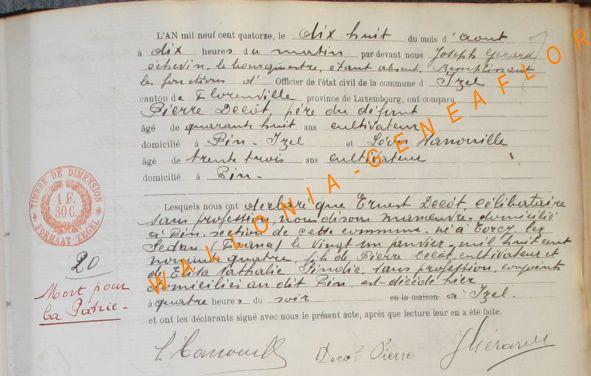 L'AN mil neuf cent quatorze, le dix huit du mois d'août
à dix heures du matin par devant nous Joseph Gérard
échevin, le bourgmestre, étant absent, remplissant
les fonctions d' Officier de l'état civil de la commune d' Izel
canton de Florenville province de Luxembourg, ont comparu
Pierre Decôt, père du défunt
âgé de quarante huit ans cultivateur
domicilié à Pin-Izel et Léon Hanouille
âgé de trente trois ans cultivateur
domicilié à Pin.
Lesquels nous ont déclaré que Ernest Decôt, célibataire
sans profession, nous disons manœuvre domicilié
à Pin section de cette commune né à Torcy les
Sedan (France) le vingt un janvier mil huit cent
nonante quatre, fils de Pierre Decôt, cultivateur et
de Nathalie sans profession, conjoints
domiciliés au dit Pin est décédé hier
à quatre heures du soir en la maison à Izel.
et ont les déclarants signé avec nous le présent acte, après que lecture leur en a été faite.
L Hanouille Decot Pierre J Gérard
TIMBRE DE DIMENSION
1 F.
80 C.
FORMAAT ZEGEL
20
Mort pour
la Patrie.
WALLONIA-GENEAFLOR